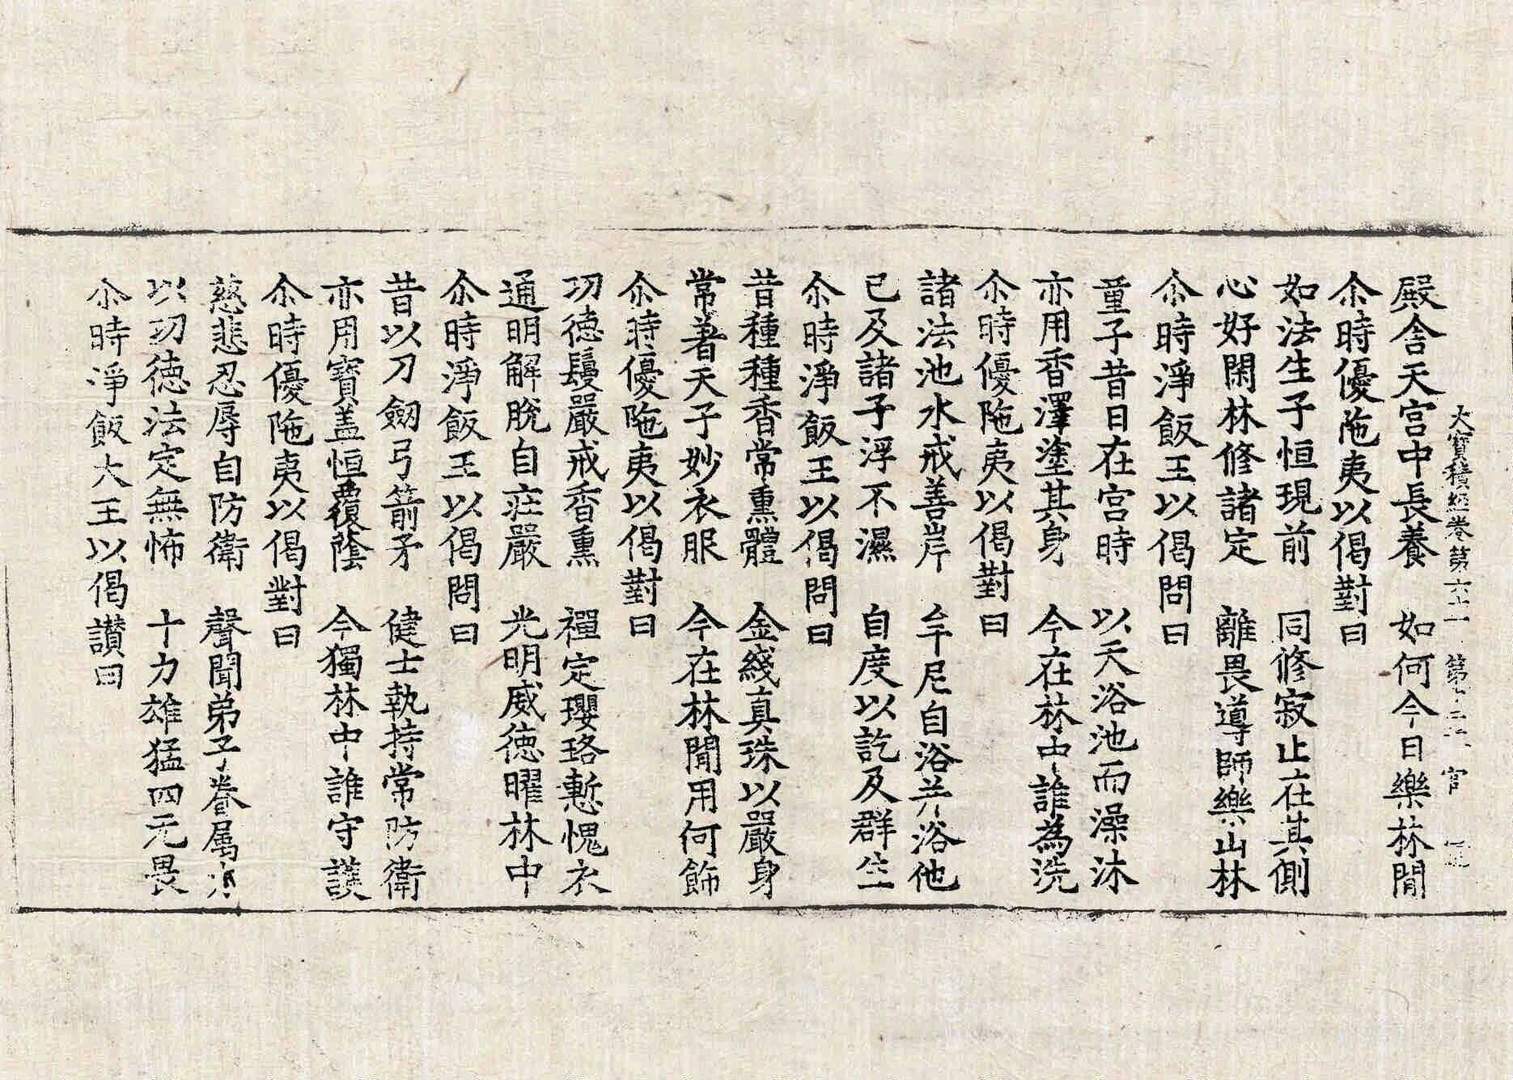 大寶積經卷第六十一 第 官
殿舍天宮中長養 如何今日樂林閒
尒時優陁夷以偈對曰
如法生子恒現前 同修寂止在其側
心好閑林修諸定 離畏導師樂山林
尒時淨飯王以偈問曰
童子昔日在宮時 以天浴池而澡沐
亦用香澤塗其身 今在林中誰為洗
尒時優陁夷以偈對曰
諸法池水戒善岸 牟尼自浴并浴他
已及諸子浮不濕 自度以訖及群生
尒時淨飯王以偈問曰
昔種種香常熏體 金綫真珠以嚴身
常著天子妙衣服 今在林閒用何飾
尒時優陁夷以偈對曰
功德鬘嚴戒香熏 禪定瓔珞慙愧衣
通明解脫自莊嚴 光明威德曜林中
尒時淨飯王以偈問曰
昔以刀劒弓箭矛 健士執持常防衛
亦用寶盖恒覆蔭 今獨林中誰守護
尒時優陁夷以偈對曰
慈悲忍辱自防衛 聲聞弟子眷属
以功德法定無怖 十力雄猛四无畏
尒時淨飯大王以偈讃曰